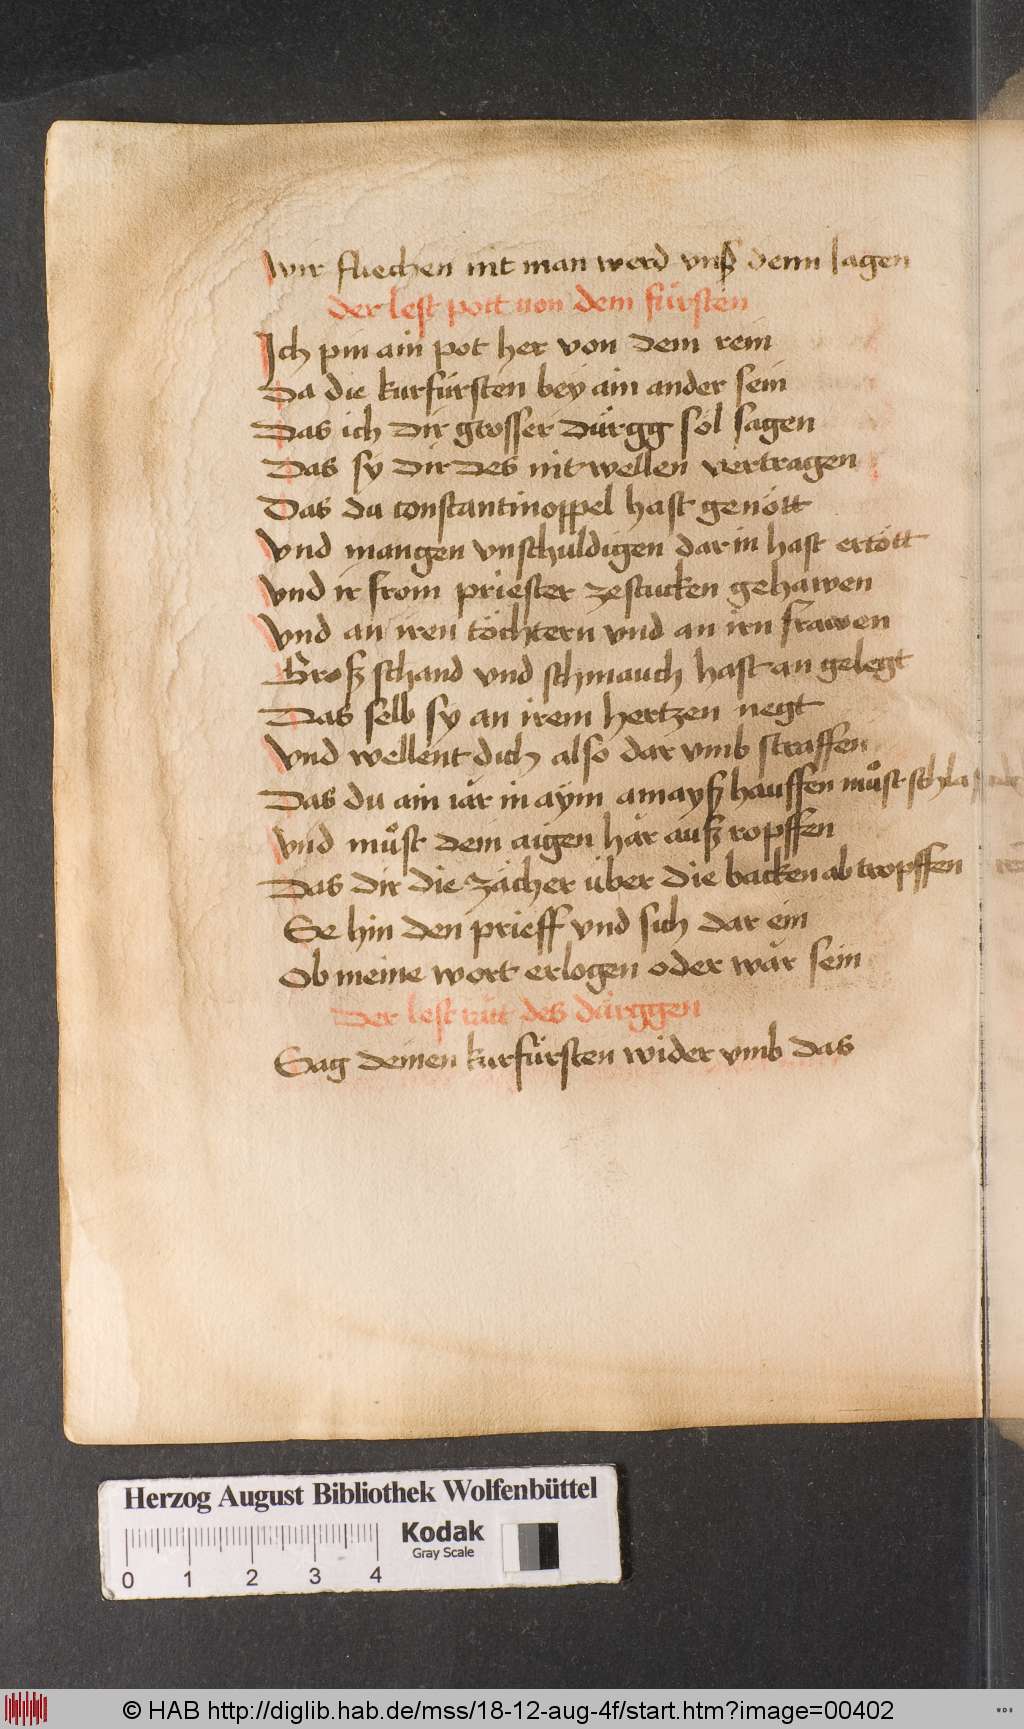 Wir fliechen nit man werd vnß denn Jagen
der lest pott von dem fürsten
Ich pin ain pot her von dem rein
Da die kurfürsten bey ain ander sein
Das ich dir grosser dürgg sol sagen
Das sy dir des nit wellen vertragen
Das du constantinoppel hast genött
Vnd mangen vnschuldigen darin hast ertött
Vnd ir from priester zestucken gehawen
Vnd an iren töchtern vnd an irn frawen
Groß schand vnd schmauch hast an gelegt
Das selb sy an irem hertzen negt
Vnd wellent dich also dar vmb straffen
Das du ain iär in aym amayß hauffen můst
Vnd můst dein aigen här auß ropffen
Das dir die zächer über die backen ab tropffen
Se hin den prieff vnd sich dar ein
Ob meine wort erlogen oder wär sein
Der lest rät des dürggen
Sag deinen kurfürsten wider vmb das
Herzog August Bibliothek Wolfenbüttel
Kodak
Gray Scale
0 1 2 3 4
© HAB http://diglib.hab.de/mss/18-12-aug-4f/start.htm?image=00402